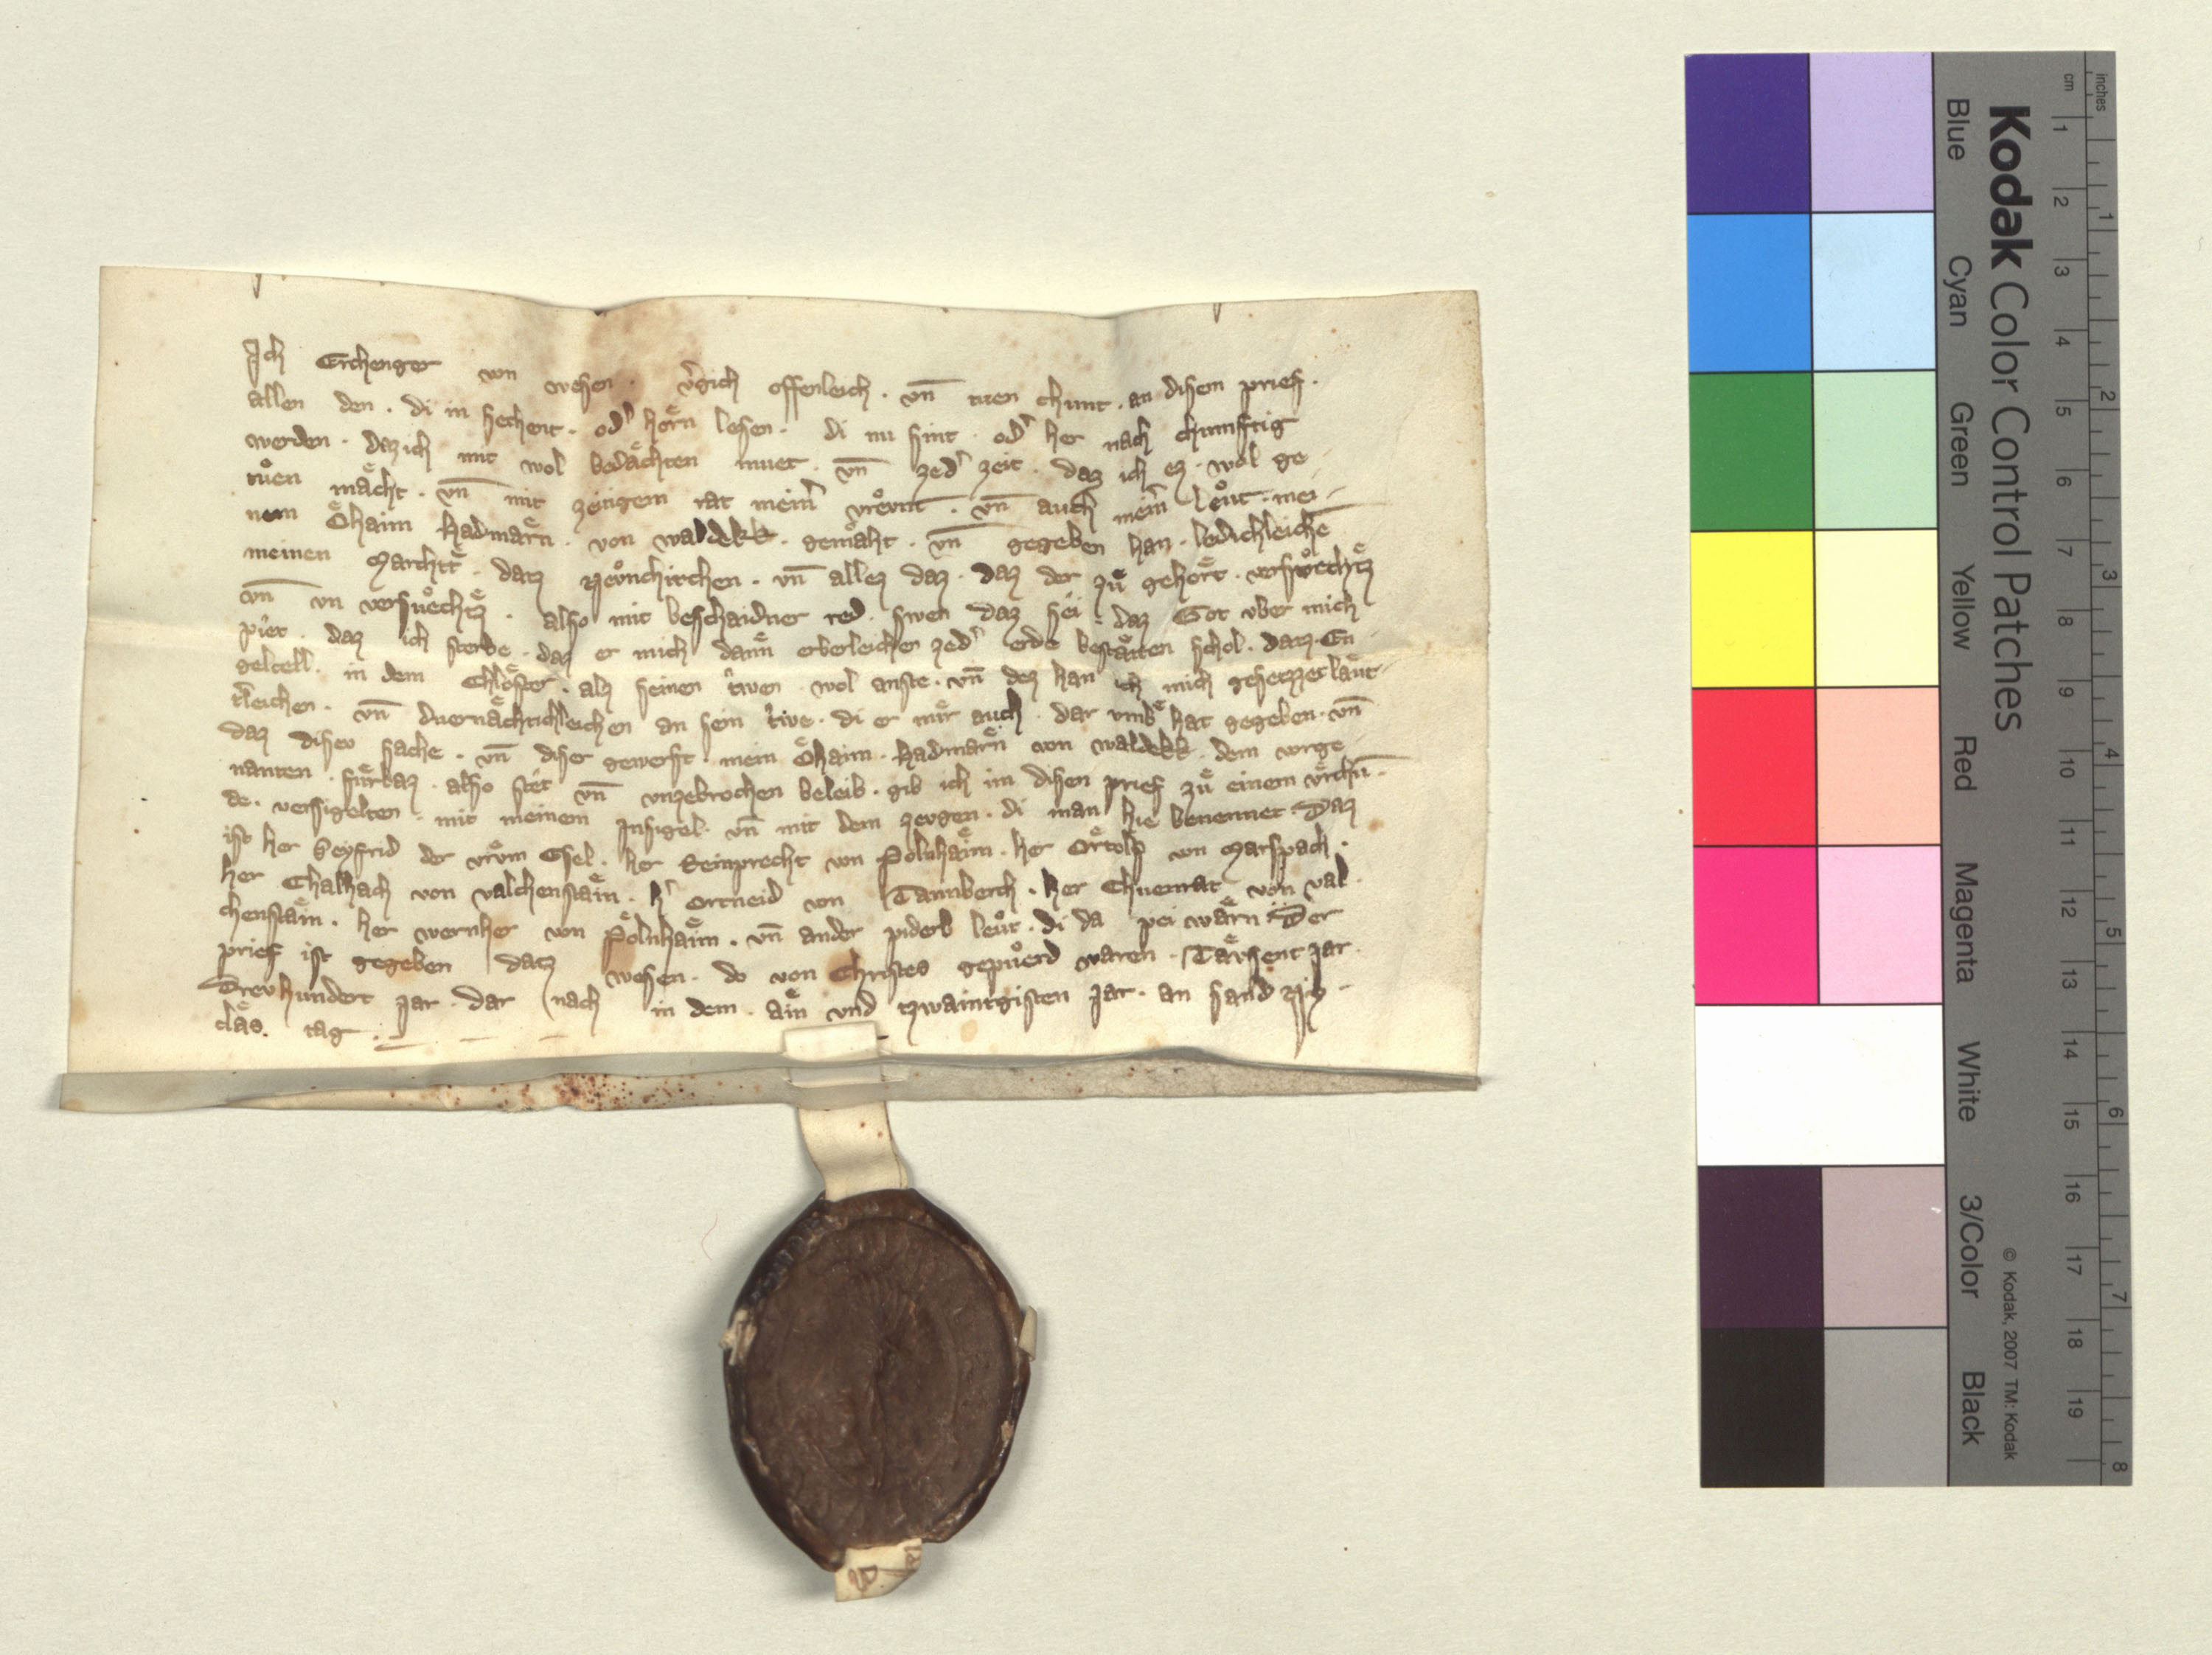 Ich Erchenger von wesen . v᷑gich offenleich . vn̄ tuen chunt . an disem prief .
allen den . di in sechent . od᷑ hoͤrn lesen . di nu sint . od᷑ her nach chumftig
werden . daz ich mit wol bedaͤchten muet . vn̄ zed᷑ zeit . daz ich ez . wol ge
tuͦen maͤcht . vn̄ mit zeitigem rat mein᷑ vreͦvnt . vn̄ auch mein᷑ Leͦut . mei-
nem Oͤhaim hadmaͤrn . von waldekk . gemaͤht . vn̄ gegeben han . ledichleiche
meinen Marchtͤ . datz Neͦvnchirchen . vn̄ allez daz . daz der zuͤ gehoͤrt . versuͦechtz
vn̄ vn versuͦechtz . also mit beschaidner red . swen daz sei . daz Got vber mich
piet . daz ich sterbe . daz er mich dann erberleichen zed᷑ erde bestaͤtten schol . datz . En
gelcell . in dem Chloͤster . alz seinen triwen wol anste . vn̄ dez han ich mich gesetzzet laͤut
t᷑leichen . vn̄ duernaͤchtichleichen an sein triwe . di er mir auch . dar vmbͤ hat gegeben . vn̄
daz disev sache . vn̄ diser gewerft . mein Oͤhaim . hadmarn von waldekk . dem vorge
nanten . fuͤrbaz . also stet vn̄ vnzebrochen beleib . gib ich im disen prief zuͤ einem vrchu̅-
de . versigelten . mit meinem Insigel . vn̄ mit dem zevgen . di man hie benennet . Daz
ist her Seyfrid der vroͤm Esel . her Reinprecht von Polnhaͤim . her Oͤrtolf von Marspach .
her Chalhach von valchenstaͤin . h᷑ Ortneid von Tannberch . her Chuenrat von val
chenstaͤin . her wernher von Poͤlnhaͤim . vn̄ ander piderb leuͦt . di da pei waͤrn Der
prief ist gegeben datz wesen . do von Christes gepuͦerd waren . Taͤvsent jar .
Drevhundert jar . dar nach in dem . aͤin vnd tzwaintgisten jar . an sand Nyco-
claͤs . tag .
Kodak Color Control Patches
Blue Cyan Green Yellow Red Magenta White 3/Color Black
© Kodak, 2007 TM: Kodak
cm 1 2 3 4 5 6 7 8 9 10 11 12 13 14 15 16 17 18 19
inches 1 2 3 4 5 6 7 8